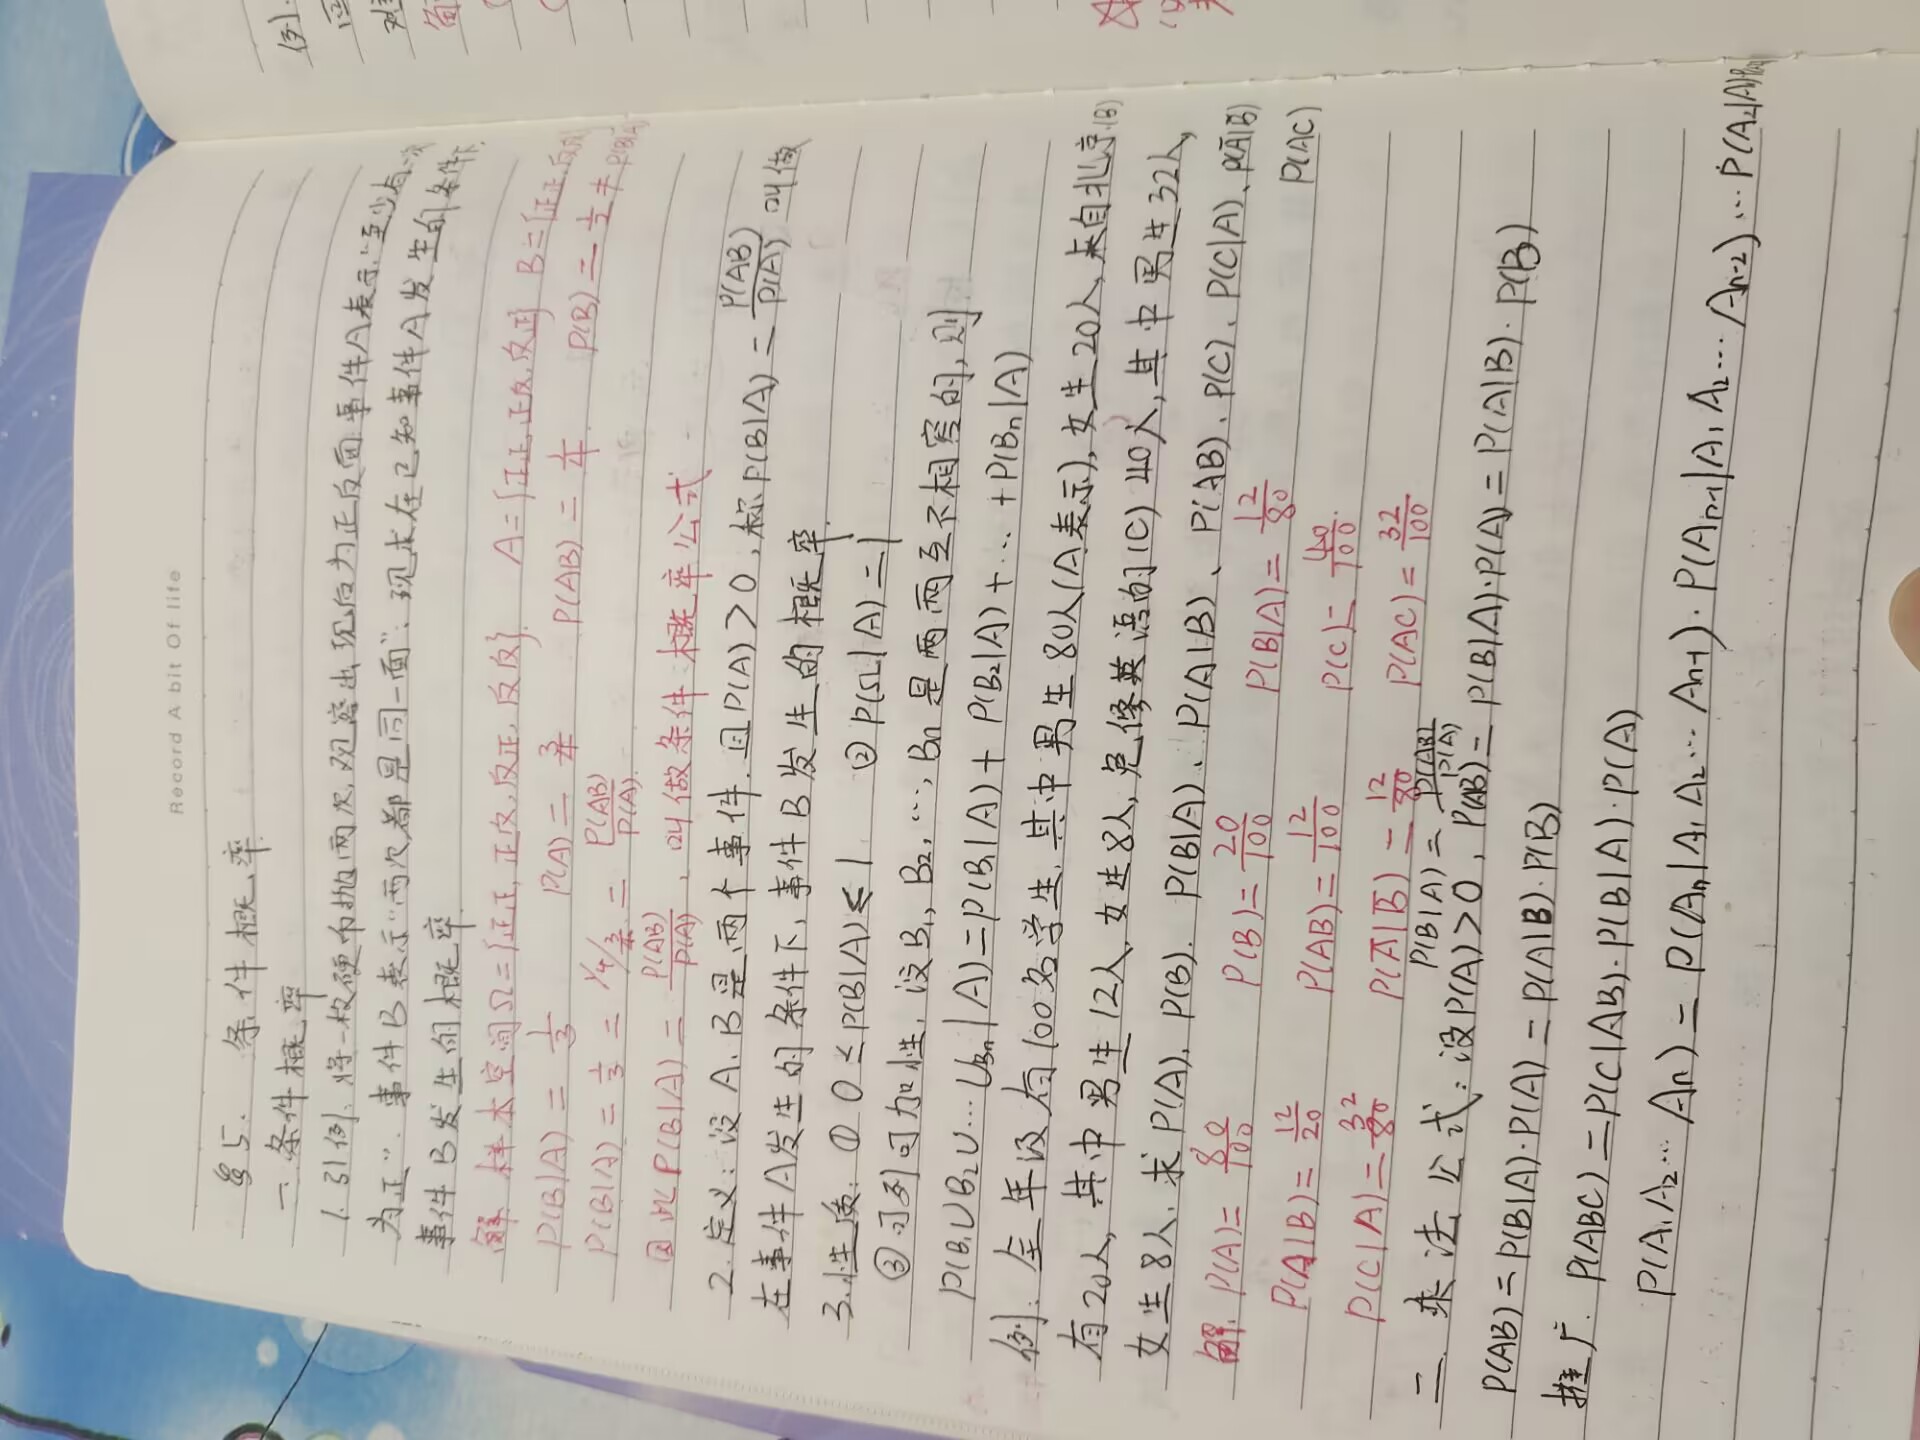 Record A bit Of life
§5. 条件概率
一. 条件概率
1. 引例. 将一枚硬币抛两次, 观察出现后为正反面. 事件A表示"至少有一次
为正". 事件B表示"两次都是同一面". 现求在已知事件A发生的条件下.
事件B发生的概率
解 样本空间Ω={正正, 正反, 反正, 反反}. A={正正, 正反, 反正} B={正正, 反反}
P(B|A) = 1/3 P(A) = 3/4 P(AB) = 1/4 P(B) = 1/2 ≠ P(B|A)
P(B|A) = 1/3 = 1/4/3/4 = P(AB)/P(A).
因此P(B|A) = P(AB)/P(A), 叫做条件概率公式.
2. 定义: 设A. B是两个事件. 且P(A)>0, 称P(B|A) = P(AB)/P(A), 叫做
在事件A发生的条件下, 事件B发生的概率
3. 性质. ① 0≤P(B|A)≤1. ② P(Ω|A)=1
③可列可加性, 设B₁, B₂, …, Bn是两两互不相容的, 则
P(B₁∪B₂∪…∪Bn|A)=P(B₁|A)+P(B₂|A)+…+P(Bn|A)
例. 全年级有100名学生, 其中男生80人(A表示), 女生20人, 来自北京(B)
有20人, 其中男生12人, 女生8人, 免修英语的(C) 40人, 其中男生32人,
女生8人. 求P(A), P(B). P(B|A). P(A|B)、P(AB). P(C). P(C|A)、P(Ā|B̄)
P(AC)
解. P(A)=80/100 P(B)=20/100 P(B|A)=12/80
P(A|B)=12/20 P(AB)=12/100 P(C)=40/100.
P(C|A)=32/80 P(Ā|B̄)=12/80 P(AC)=32/100
P(B|A)=P(AB)/P(A)
二. 乘法公式: 设P(A)>0, P(AB)=P(B|A)·P(A)=P(A|B)·P(B)
P(AB)=P(B|A)·P(A)=P(A|B)·P(B)
推广. P(ABC)=P(C|AB)·P(B|A)·P(A)
P(A₁A₂…An)=P(An|A₁A₂…An-1)·P(An-1|A₁A₂…An-2)…P(A₂|A₁)P(A₁)